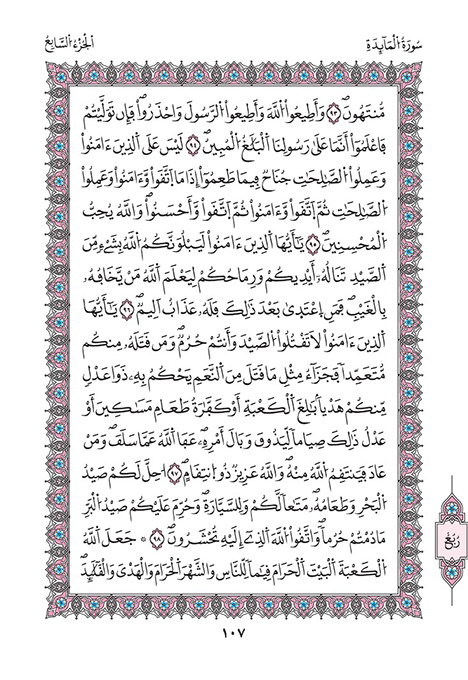 سُورَةُ الْمَآئِدَةِ
اَلْجُزْءُ السَّابِعُ
مُّنتَهُونَۖ ٩٣ وَأَطِيعُواْ اُللَّهَ وَأَطِيعُواْ اُلرَّسُولَ وَاحْذَرُواْۖ فَإِن تَوَلَّيْتُمْ
فَاعْلَمُوٓاْ أَنَّمَا عَلَىٰ رَسُولِنَا اَلْبَلَٰغُ الْمُبِينُۖ ٩٤ لَيْسَ عَلَى اَلذِينَ ءَامَنُواْ
وَعَمِلُواْ اُلصَّٰلِحَٰتِ جُنَاحٞ فِيمَا طَعِمُوٓاْ إِذَا مَا اَتَّقَواْ وَّءَامَنُواْ وَعَمِلُواْ
اُلصَّٰلِحَٰتِ ثُمَّ اَتَّقَواْ وَّءَامَنُواْ ثُمَّ اَتَّقَواْ وَّأَحْسَنُواْۖ وَاللَّهُ يُحِبُّ
اُلْمُحْسِنِينَۖ ٩٥ يَٰٓأَيُّهَا اَلذِينَ ءَامَنُواْ لَيَبْلُوَنَّكُمُ اُللَّهُ بِشَےْءٖ مِّنَ
اَلصَّيْدِ تَنَالُهُۥٓ أَيْدِيكُمْ وَرِمَاحُكُمْ لِيَعْلَمَ اَللَّهُ مَنْ يَّخَافُهُۥ
بِالْغَيْبِۖ فَمَنِ اِعْتَد۪ىٰ بَعْدَ ذَٰلِكَ فَلَهُۥ عَذَابٌ اَلِيمٞۖ ٩٦ يَٰٓأَيُّهَا
اَلذِينَ ءَامَنُواْ لَا تَقْتُلُواْ اُلصَّيْدَ وَأَنتُمْ حُرُمٞۖ وَمَن قَتَلَهُۥ مِنكُم
مُّتَعَمِّداٗ فَجَزَآءُ مِثْلِ مَا قَتَلَ مِنَ اَلنَّعَمِ يَحْكُمُ بِهِۦ ذَوَا عَدْلٖ
مِّنكُمْ هَدْياَۢ بَٰلِغَ اَلْكَعْبَةِ أَوْ كَفَّٰرَةُ طَعَامِ مَسَٰكِينَ أَوْ
عَدْلُ ذَٰلِكَ صِيَاماٗ لِّيَذُوقَ وَبَالَ أَمْرِهِۦۖ عَفَا اَللَّهُ عَمَّا سَلَفَۖ وَمَنْ
عَادَ فَيَنتَقِمُ اُللَّهُ مِنْهُۖ وَاللَّهُ عَزِيزٞ ذُو اُنتِقَامٍۖ ٩٧ اُحِلَّ لَكُمْ صَيْدُ
اُلْبَحْرِ وَطَعَامُهُۥۖ مَتَٰعاٗ لَّكُمْ وَلِلسَّيَّارَةِۖ وَحُرِّمَ عَلَيْكُمْ صَيْدُ اُلْبَرِّ
مَا دُمْتُمْ حُرُماٗۖ وَاتَّقُواْ اُللَّهَ اَلذِےٓ إِلَيْهِ تُحْشَرُونَۖ ٩٨ ۞ جَعَلَ اَللَّهُ
اُلْكَعْبَةَ اَلْبَيْتَ اَلْحَرَامَ قِيَٰماٗ لِّلنَّاسِ وَالشَّهْرَ اَلْحَرَامَ وَالْهَدْيَ وَالْقَلَٰٓئِدَۖ
رُبْع
١٠٧